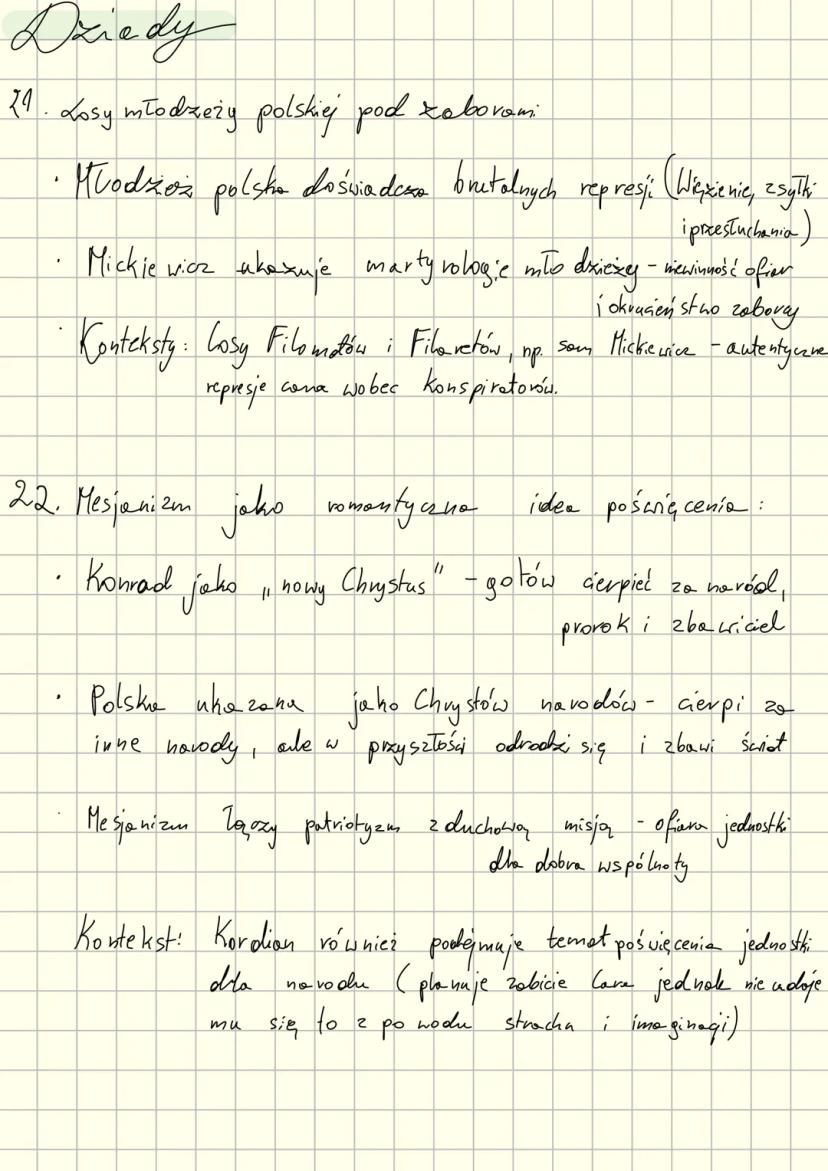 Dziady
21. Losy młodzeży polskiej pod zaborami
· Młodzież polska doświadcza brutalnych represji (Więzienie, zsyłki
i przesłuchania)
· Mickiewicz ukazuje martyrologię młodzieży - niewinność ofiar
i okrucieństwo zaborcy
· Konteksty: losy Filomatów i Filaretów, np. sam Mickiewicz - autentyczne
represje cara wobec konspiratorów.
22. Mesjanizm jako romantyczna idea poświęcenia:
· Konrad jako „nowy Chrystus" - gotów cierpieć za naród,
prorok i zbawiciel
· Polska ukazana jako Chrystów narodów - cierpi za
inne narody, ale w przyszłości odrodzi się i zbawi świat
· Mesjanizm łączy patriotyzm z duchową misją - ofiara jednostki
dla dobra wspólnoty
Kontekst: Kordian również podejmuje temat poświęcenia jednostki
dla narodu (planuje zabicie Cara jednak nie udaje
mu się to z powodu strachu i imaginacji)